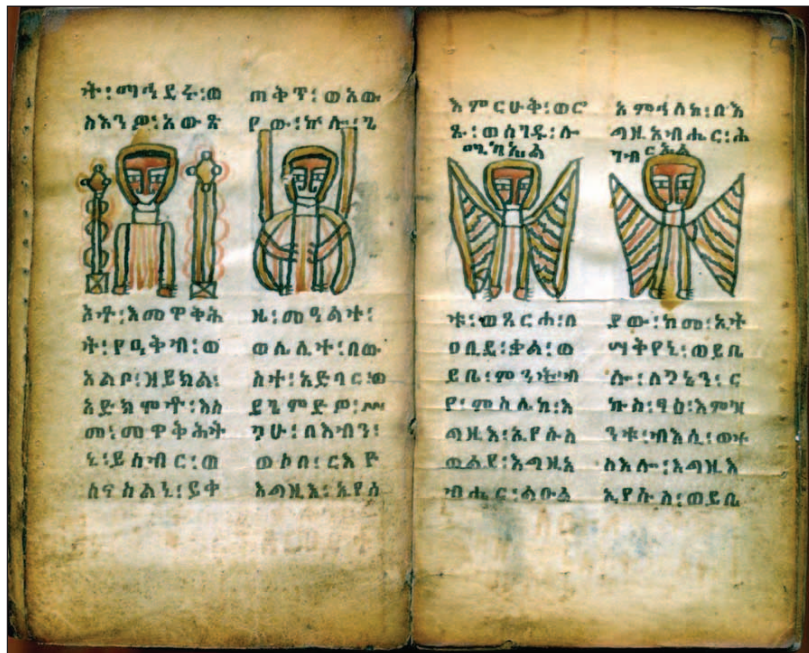 ት፡ማኅደሩ፡ወ
ስእንዎ፡አውጽ
ኦቶ፡እመዋቅሕ
ት፡የዓቅብ፡ወ
አልቦ፡ዝይክል፡
አድክሞቶ፡እስ
መ፡መዋቅሕት
ኒ፡ይሰብር፡ወ
ሰናስልኒ፡ይቀ
ጠቅጥ፡ወአው
የው፡ኵሎ፡ጊ
ዜ፡መዓልተ፡
ወሌሊተ፡በው
ስተ፡አድባር፡ወ
ይጌምድዎ፡ሥ
ጋሁ፡በእብን፡
ወሶበ፡ርእዮ
እግዚእ፡ኢየሱ
እምርሁቅ፡ወሮ
ጸ፡ወሰገደ፡ሎ
ሚካኤል
ቱ፡ወጸርሐ፡በ
ዐቢይ፡ቃል፡ወ
ይቤ፡ምንት፡ብ
የ፡ምስሌከ፡እ
ግዚእ፡ኢየሱስ
ወልደ፡እግዚአ
ብሔር፡ልዑል
አምኅለከ፡በእ
ግዚአብሔር፡ሕ
ገብርኤል
ያው፡ከመ፡ኢት
ሣቅየኒ፡ወይቤ
ሎ፡ለጋኔን፡ር
ኩስ፡ፃዕ፡እምዝ
ንቱ፡ብእሲ፡ወተ
ስእሎ፡እግዚእ
ኢየሱስ፡ወይቤ